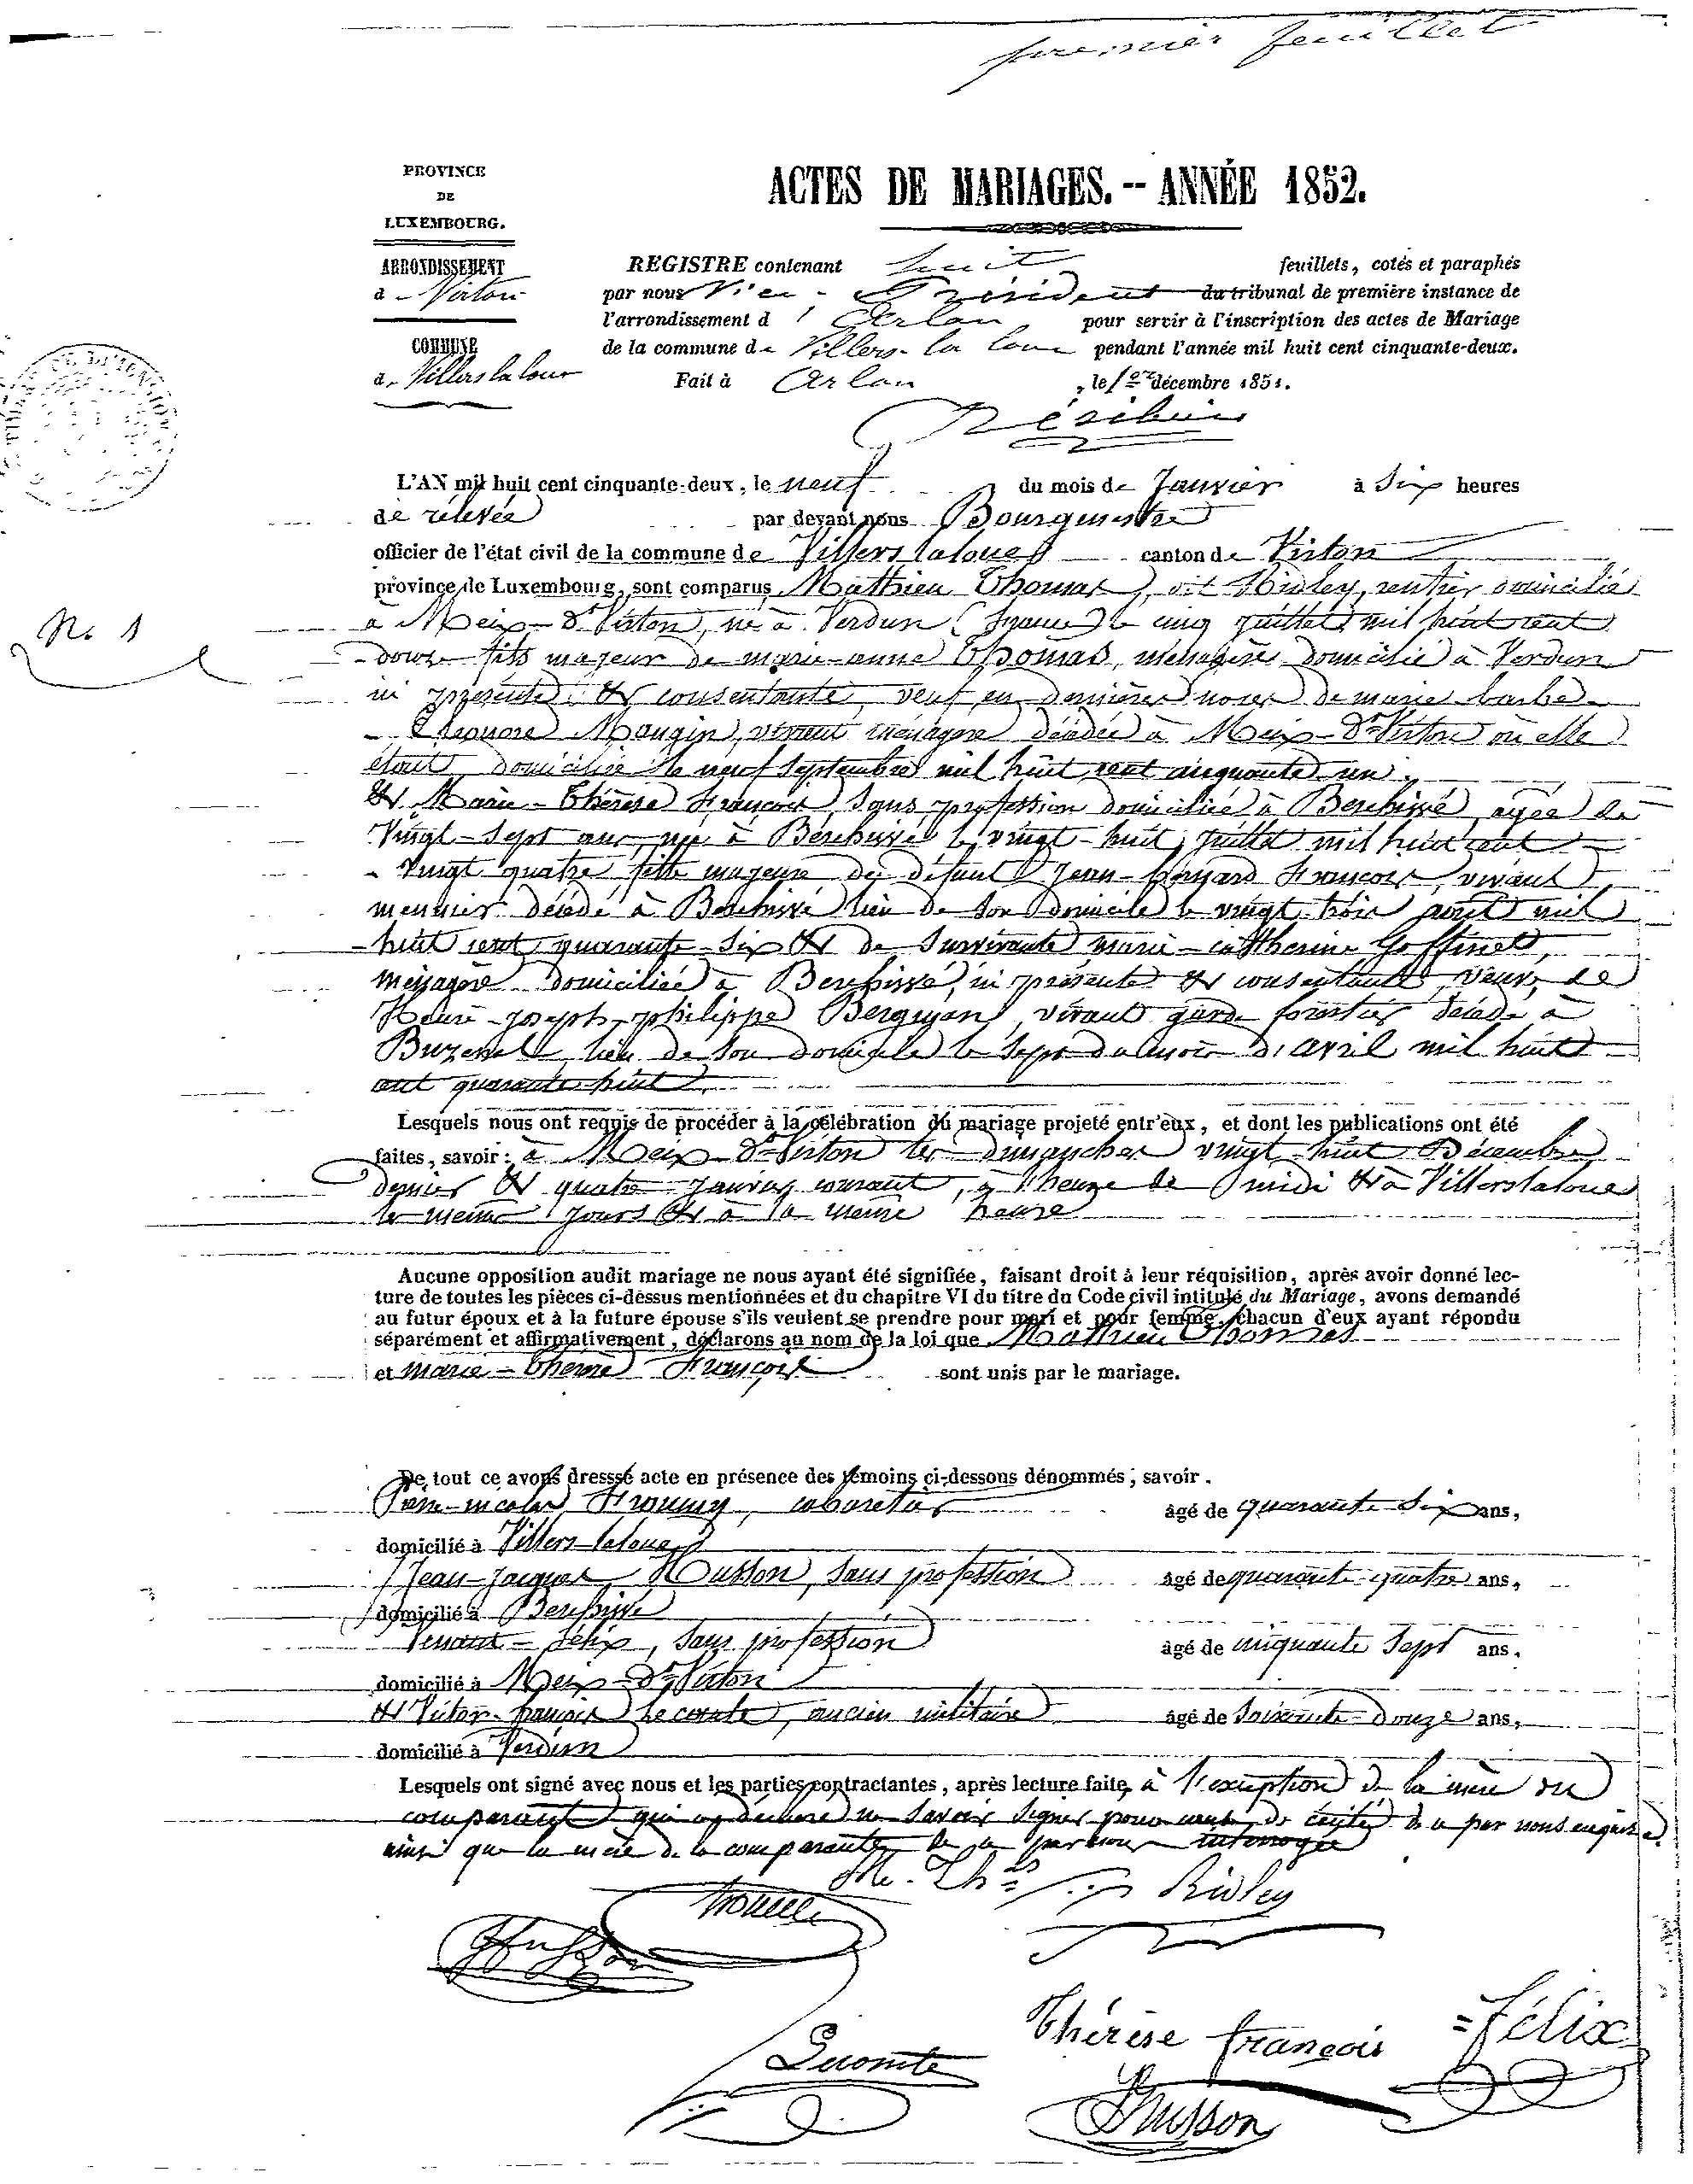 premier feuillet
PROVINCE
DE
LUXEMBOURG.
ARRONDISSEMENT
d Virton
COMMUNE
de Villers la loue
ACTES DE MARIAGES. -- ANNÉE 1852.
REGISTRE contenant huit feuillets, cotés et paraphés
par nous Vice-Président du tribunal de première instance de
l'arrondissement d'Arlon pour servir à l'inscription des actes de Mariage
de la commune de Villers-la loue pendant l'année mil huit cent cinquante-deux.
Fait à Arlon, le 1er décembre 1851.
N. 1
L'AN mil huit cent cinquante-deux, le neuf du mois de Janvier à Six heures
de rélevée par devant nous Bourgmestre
officier de l'état civil de la commune de Villers laloue canton de Virton
province de Luxembourg, sont comparus Mathieu Thomas, dit Ridley, rentier domicilié
à Meix-Dt Virton, né à Verdun (france) le cinq juillet mil huit cent
douze fils majeur de marie-anne Thomas, ménagère domicilié à Verdun
ici présente & consentante, veuf en dernières noces de marie barbe
Eléonore Maugin, vivant ménagère décédée à Meix-Dt Virton où elle
étoit domiciliée le neuf Septembre mil huit cent cinquante un.
& Marie-Thérèse François, Sans profession domiciliée à Berchivé, agée de
Vingt-Sept ans, née à Berchivé le vingt-huit juillet mil huit cent
vingt quatre fille majeure de défunt Jean- François, vivant
meunier décédé à Berchivé lieu de Son domicile le vingt trois août mil
huit cent quarante-Six & de Survivante marie-catherine Goffinet,
ménagère domiciliée à Berchivé, ici présente & consentante, veuve de
-joseph-philippe, vivant garde forestier décédé à
Buzenol, lieu de Son domicile le Sept du mois d'avril mil huit
cent quarante-huit
Lesquels nous ont requis de procéder à la célébration du mariage projeté entr'eux, et dont les publications ont été
faites, savoir: à Meix-Dt Virton les dimanches vingt-huit Décembre
dernier & quatre janvier courant, à l'heure de midi & à Villerslaloue
les meme jours & à la meme heure
Aucune opposition audit mariage ne nous ayant été signifiée, faisant droit à leur réquisition, après avoir donné lec-
ture de toutes les pièces ci-dessus mentionnées et du chapitre VI du titre du Code civil intitulé du Mariage, avons demandé
au futur époux et à la future épouse s'ils veulent se prendre pour mari et pour femme, chacun d'eux ayant répondu
séparément et affirmativement, déclarons au nom de la loi que Mathieu Thomas
et marie-Therese François sont unis par le mariage.
De tout ce avons dresssé acte en présence des témoins ci-dessous dénommés; savoir.
nicolas, cabaretier âgé de quarante Six ans,
domicilié à Villers-laloue
Jean-Jacques Husson, Sans profession âgé de quarante-quatre ans,
domicilié à Berchivé
Félix, Sans profession âgé de cinquante Sept ans.
domicilié à Meix-Dt Virton
& Victor-françois Lecomte, ancien militaire âgé de Soixante-Douze ans,
domicilié à Verdun
Lesquels ont signé avec nous et les parties contractantes, après lecture faite, à l'exception de la mère du
comparant qui a déclaré ne Savoir Signer pour cause de cécité de ce par nous enquise,
ainsi que la mère de la comparante de ce par nous interrogée
Me. Ths Ridley
Husson
Thérèse françois
Félix
Lecomte
Husson